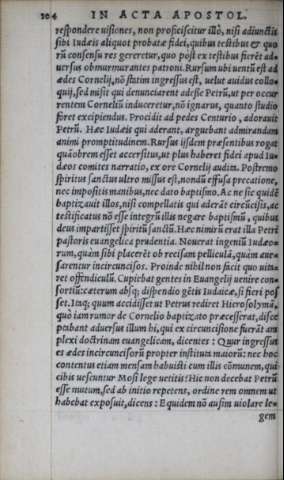 104 IN ACTA APOSTOL.
respondere uisiones, non proficiscitur illò, nisi adiunctis
sibi Iudæis aliquot probatæ fidei, quibus testibus & quo
rū consensu res gereretur, quo post ex testibus fierēt ad-
uersus obmurmurantes patroni. Rursum ubi uentū est ad
ædes Cornelij, nō statim ingressus est, uelut auidus collo-
quij, sed misit qui denunciarent adesse Petrū, ut per occur
rentem Corneliū induceretur, nō ignarus, quanto studio
foret excipiendus. Procidit ad pedes Centurio, adorauit
Petrū. Hæc Iudæis qui aderant, arguebant admirandam
animi promptitudinem. Rursus ijsdem præsentibus rogat
quàobrem esset accersitus, ut plus haberet fidei apud Iu-
dæos comites narratio, ex ore Cornelij audita. Postremo
spiritus sanctus ultro missus est, nondū effusa precatione,
nec impositis manibus, nec dato baptismo. Ac ne sic quidē
baptizauit illos, nisi compellatis qui aderāt circūcisis, ac
testificatus nō esse integrū illis negare baptismū, quibus
deus impartisset spiritū sanctū. Hæc nimirū erat illa Petri
pastoris euangelica prudentia. Nouerat ingeniū Iudæo-
rum, quàm sibi placerēt ob recisam pelliculā, quàm auer-
sarentur incircuncisos. Proinde nihil non facit quo uita-
ret offendiculū. Cupiebat gentes in Euangelij uenire con-
sortiū: cæterum absq; dispendio gētis Iudaicæ, si fieri pos
set. Itaq; quum accidisset ut Petrus rediret Hierosolymā,
quò iam rumor de Cornelio baptizato præcesserat, disce
ptabant aduersus illum hi, qui ex circuncisione fuerāt am
plexi doctrinam euangelicam, dicentes: Quur ingressus
es ædes incircuncisorū propter instituta maiorū: nec hoc
contentus etiam mensam habuisti cum illis cōmunem, qui
cibis uescuntur Mosi lege uetitis? Hic non decebat Petrū
esse mutum, sed ab initio repetens, ordine rem omnem ut
habebat exposuit, dicens: Equidem nō ausim uiolare le-
gem